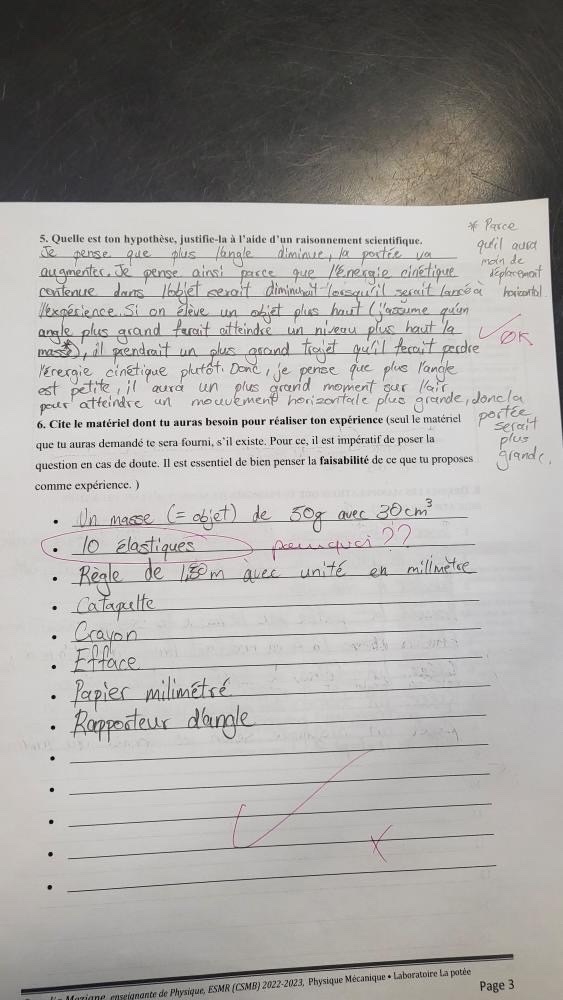 5. Quelle est ton hypothèse, justifie-la à l'aide d'un raisonnement scientifique.
Je pense que plus l'angle diminue, la portée va
augmenter. Je pense ainsi parce que l'énergie cinétique
contenue dans l'objet serait diminuait lorsqu'il serait lancé à
l'expérience. Si on élève un objet plus haut (j'assume qu'un
angle plus grand ferait atteindre un niveau plus haut la
masse*), il prendrait un plus grand trajet qu'il ferait perdre
l'érergie cinétique plutôt. Donc, je pense que plus l'angle
est petite, il aura un plus grand moment sur l'air
pour atteindre un mouvement horizontale plus grande, donc la
portée
serait
plus
grande.
* Parce
qu'il aura
moin de
déplacement
horizontal.
OK
6. Cite le matériel dont tu auras besoin pour réaliser ton expérience (seul le matériel
que tu auras demandé te sera fourni, s'il existe. Pour ce, il est impératif de poser la
question en cas de doute. Il est essentiel de bien penser la faisabilité de ce que tu proposes
comme expérience. )
• Un masse (= objet) de 50g avec 30cm³
• 10 élastiques pourquoi ??
• Règle de 1,50m avec unité en milimètre
• Catapulte
• Crayon
• Efface
• Papier milimétré
• Rapporteur d'angle
enseignante de Physique, ESMR (CSMB) 2022-2023, Physique Mécanique • Laboratoire La potée
Page 3